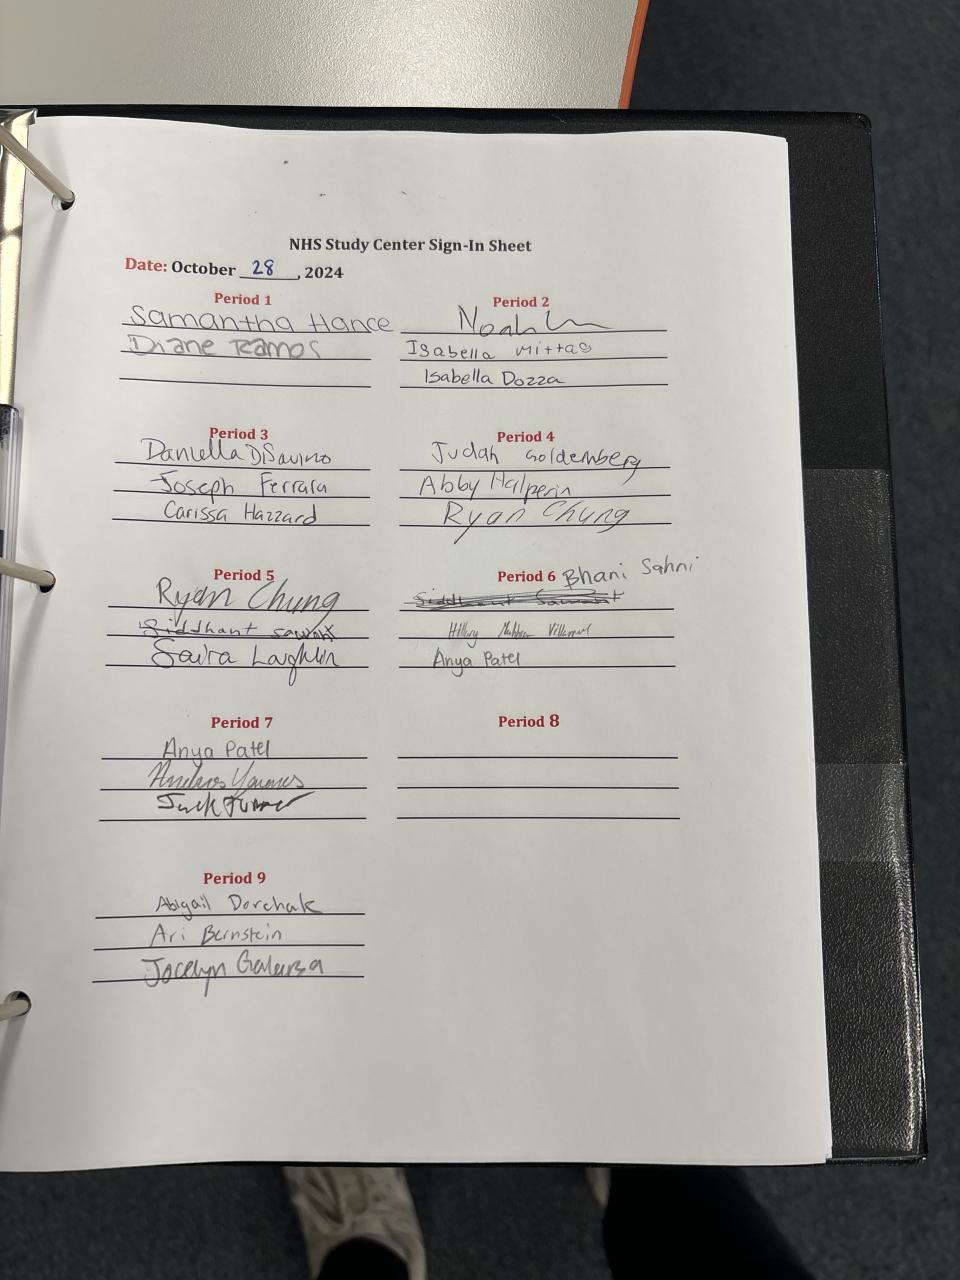 NHS Study Center Sign-In Sheet
Date: October 28, 2024
Period 1
Samantha Hance
Diane Ramos
Period 2
Noah
Isabella Mittas
Isabella Dozza
Period 3
Daniella DiSavino
Joseph Ferrara
Carissa Hazzard
Period 4
Judah Goldemberg
Abby Halperin
Ryan Chung
Period 5
Ryan Chung
Siddhant Sawant
Saira Laughlin
Period 6 Bhani Sahni
Siddhant Sawant
Hillary Villarreal
Anya Patel
Period 7
Anya Patel
Jack Turner
Period 8
Period 9
Abigail Dorchak
Ari Bernstein
Jocelyn Galarza